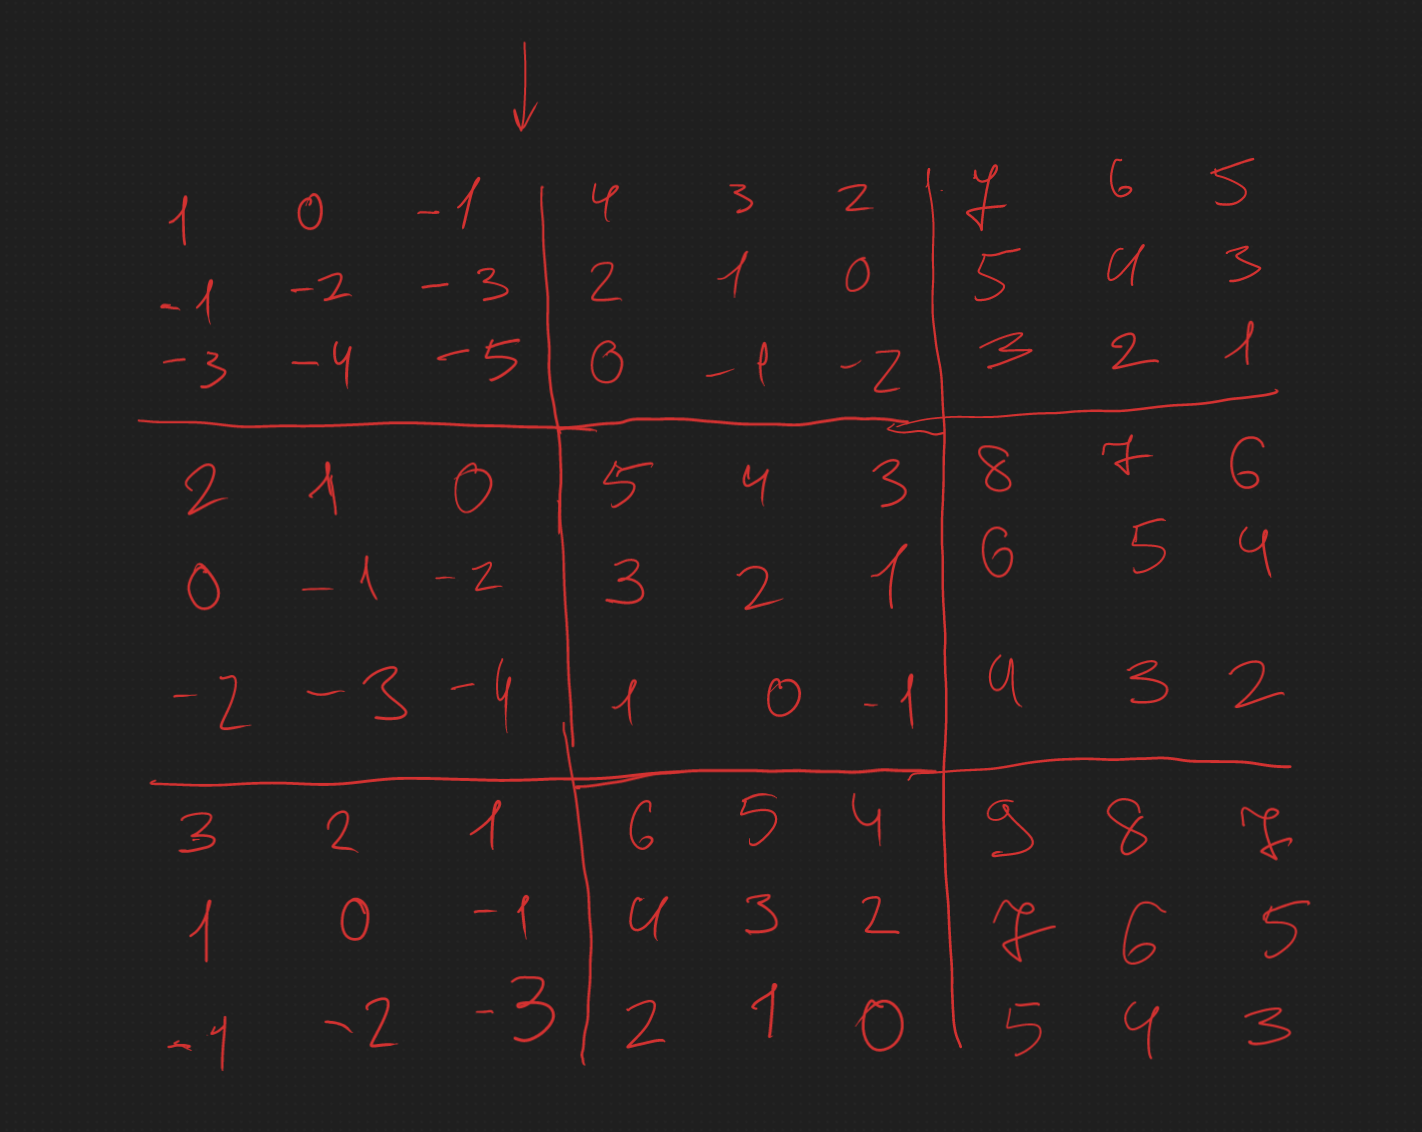 1 0 -1 4 3 2 7 6 5
-1 -2 -3 2 1 0 5 4 3
-3 -4 -5 0 -1 -2 3 2 1
2 1 0 5 4 3 8 7 6
0 -1 -2 3 2 1 6 5 4
-2 -3 -4 1 0 -1 4 3 2
3 2 1 6 5 4 9 8 7
1 0 -1 4 3 2 7 6 5
-1 -2 -3 2 1 0 5 4 3